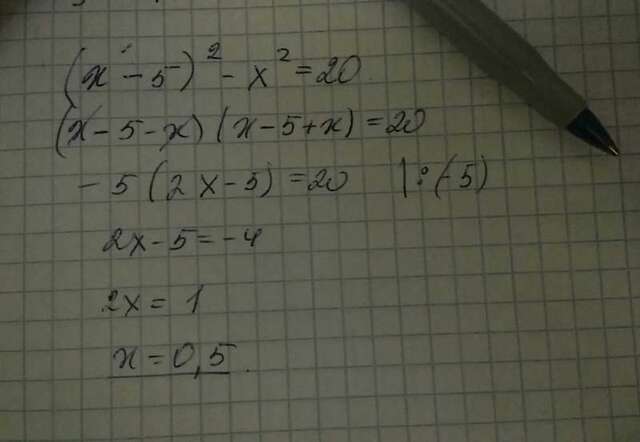 (x - 5)² - x² = 20
(x - 5 - x) (x - 5 + x) = 20
- 5 (2x - 5) = 20 | : (-5)
2x - 5 = - 4
2x = 1
x = 0,5.